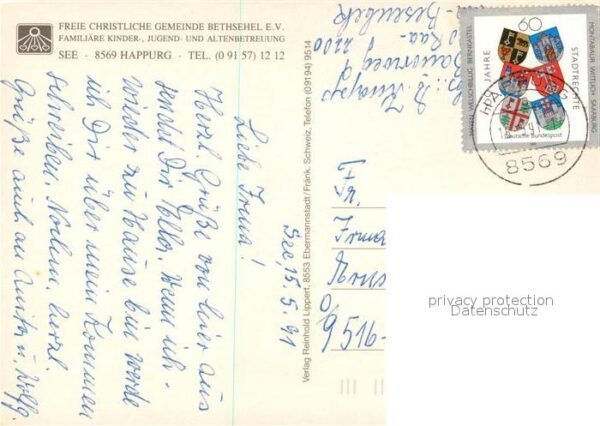 FREIE CHRISTLICHE GEMEINDE BETHSEHEL E.V.
FAMILIÄRE KINDER-, JUGEND- UND ALTENBETREUUNG
SEE · 8569 HAPPURG · TEL. (0 91 57) 12 12
See, 15.5.91
Liebe Irma!
Herzl. Grüße von hier aus
sendet Dir Wenn ich
wieder zu Hause bin werde
ich Dir über mein Kommen
schreiben. Nochm. herzl.
Grüße auch an Anita u. Wolfg.
Verlag Reinhold Lippert, 8553 Ebermannstadt/Fränk. Schweiz, Telefon (09194) 9514
2200
Fr.
Irma
9516-
60
JAHRE
STADTRECHTE
MAYEN WELSCHBILLIG BERNKASTEL
MONTABAUR WITTLICH SAARBURG
Deutsche Bundespost
8569
privacy protection
Datenschutz